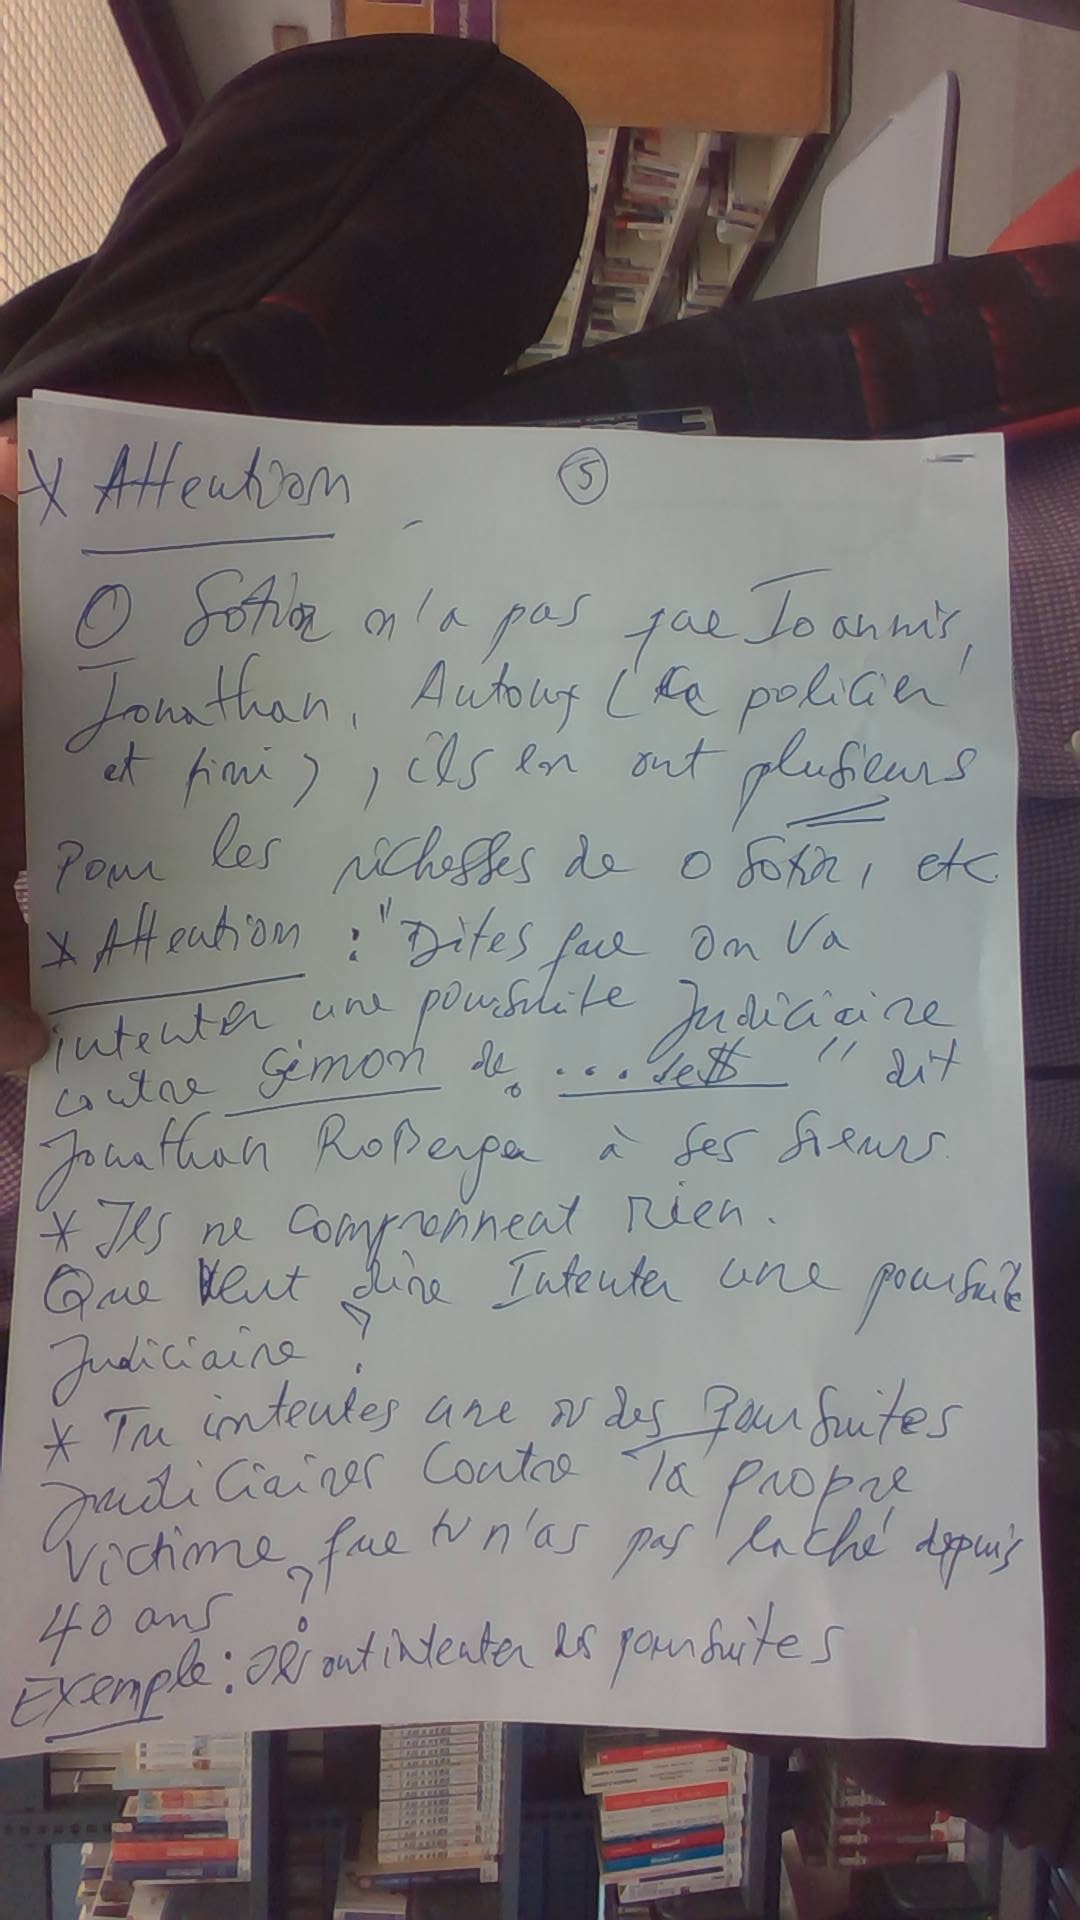 * Attention
5
O Sotir n'a pas que Ioannis,
Jonathan, Autoux (Le policier
et fini), ils en ont plusieurs
Pour les richesses de O Sotir, etc
* Attention : "Dites que on va
intenter une poursuite Judiciaire
contre Simon de ... se$" dit
Jonathan RoBerge à ses sieurs.
* Ils ne compronneat rien.
Que Veut dire Intenter une poursuite
Judiciaire ?
* Tu intentes une ou des Poursuites
Judiciaires Contre Ta propre
Victime que tu n'as pas laché depuis
40 ans ?
Exemple : Ils ont intenter des poursuites